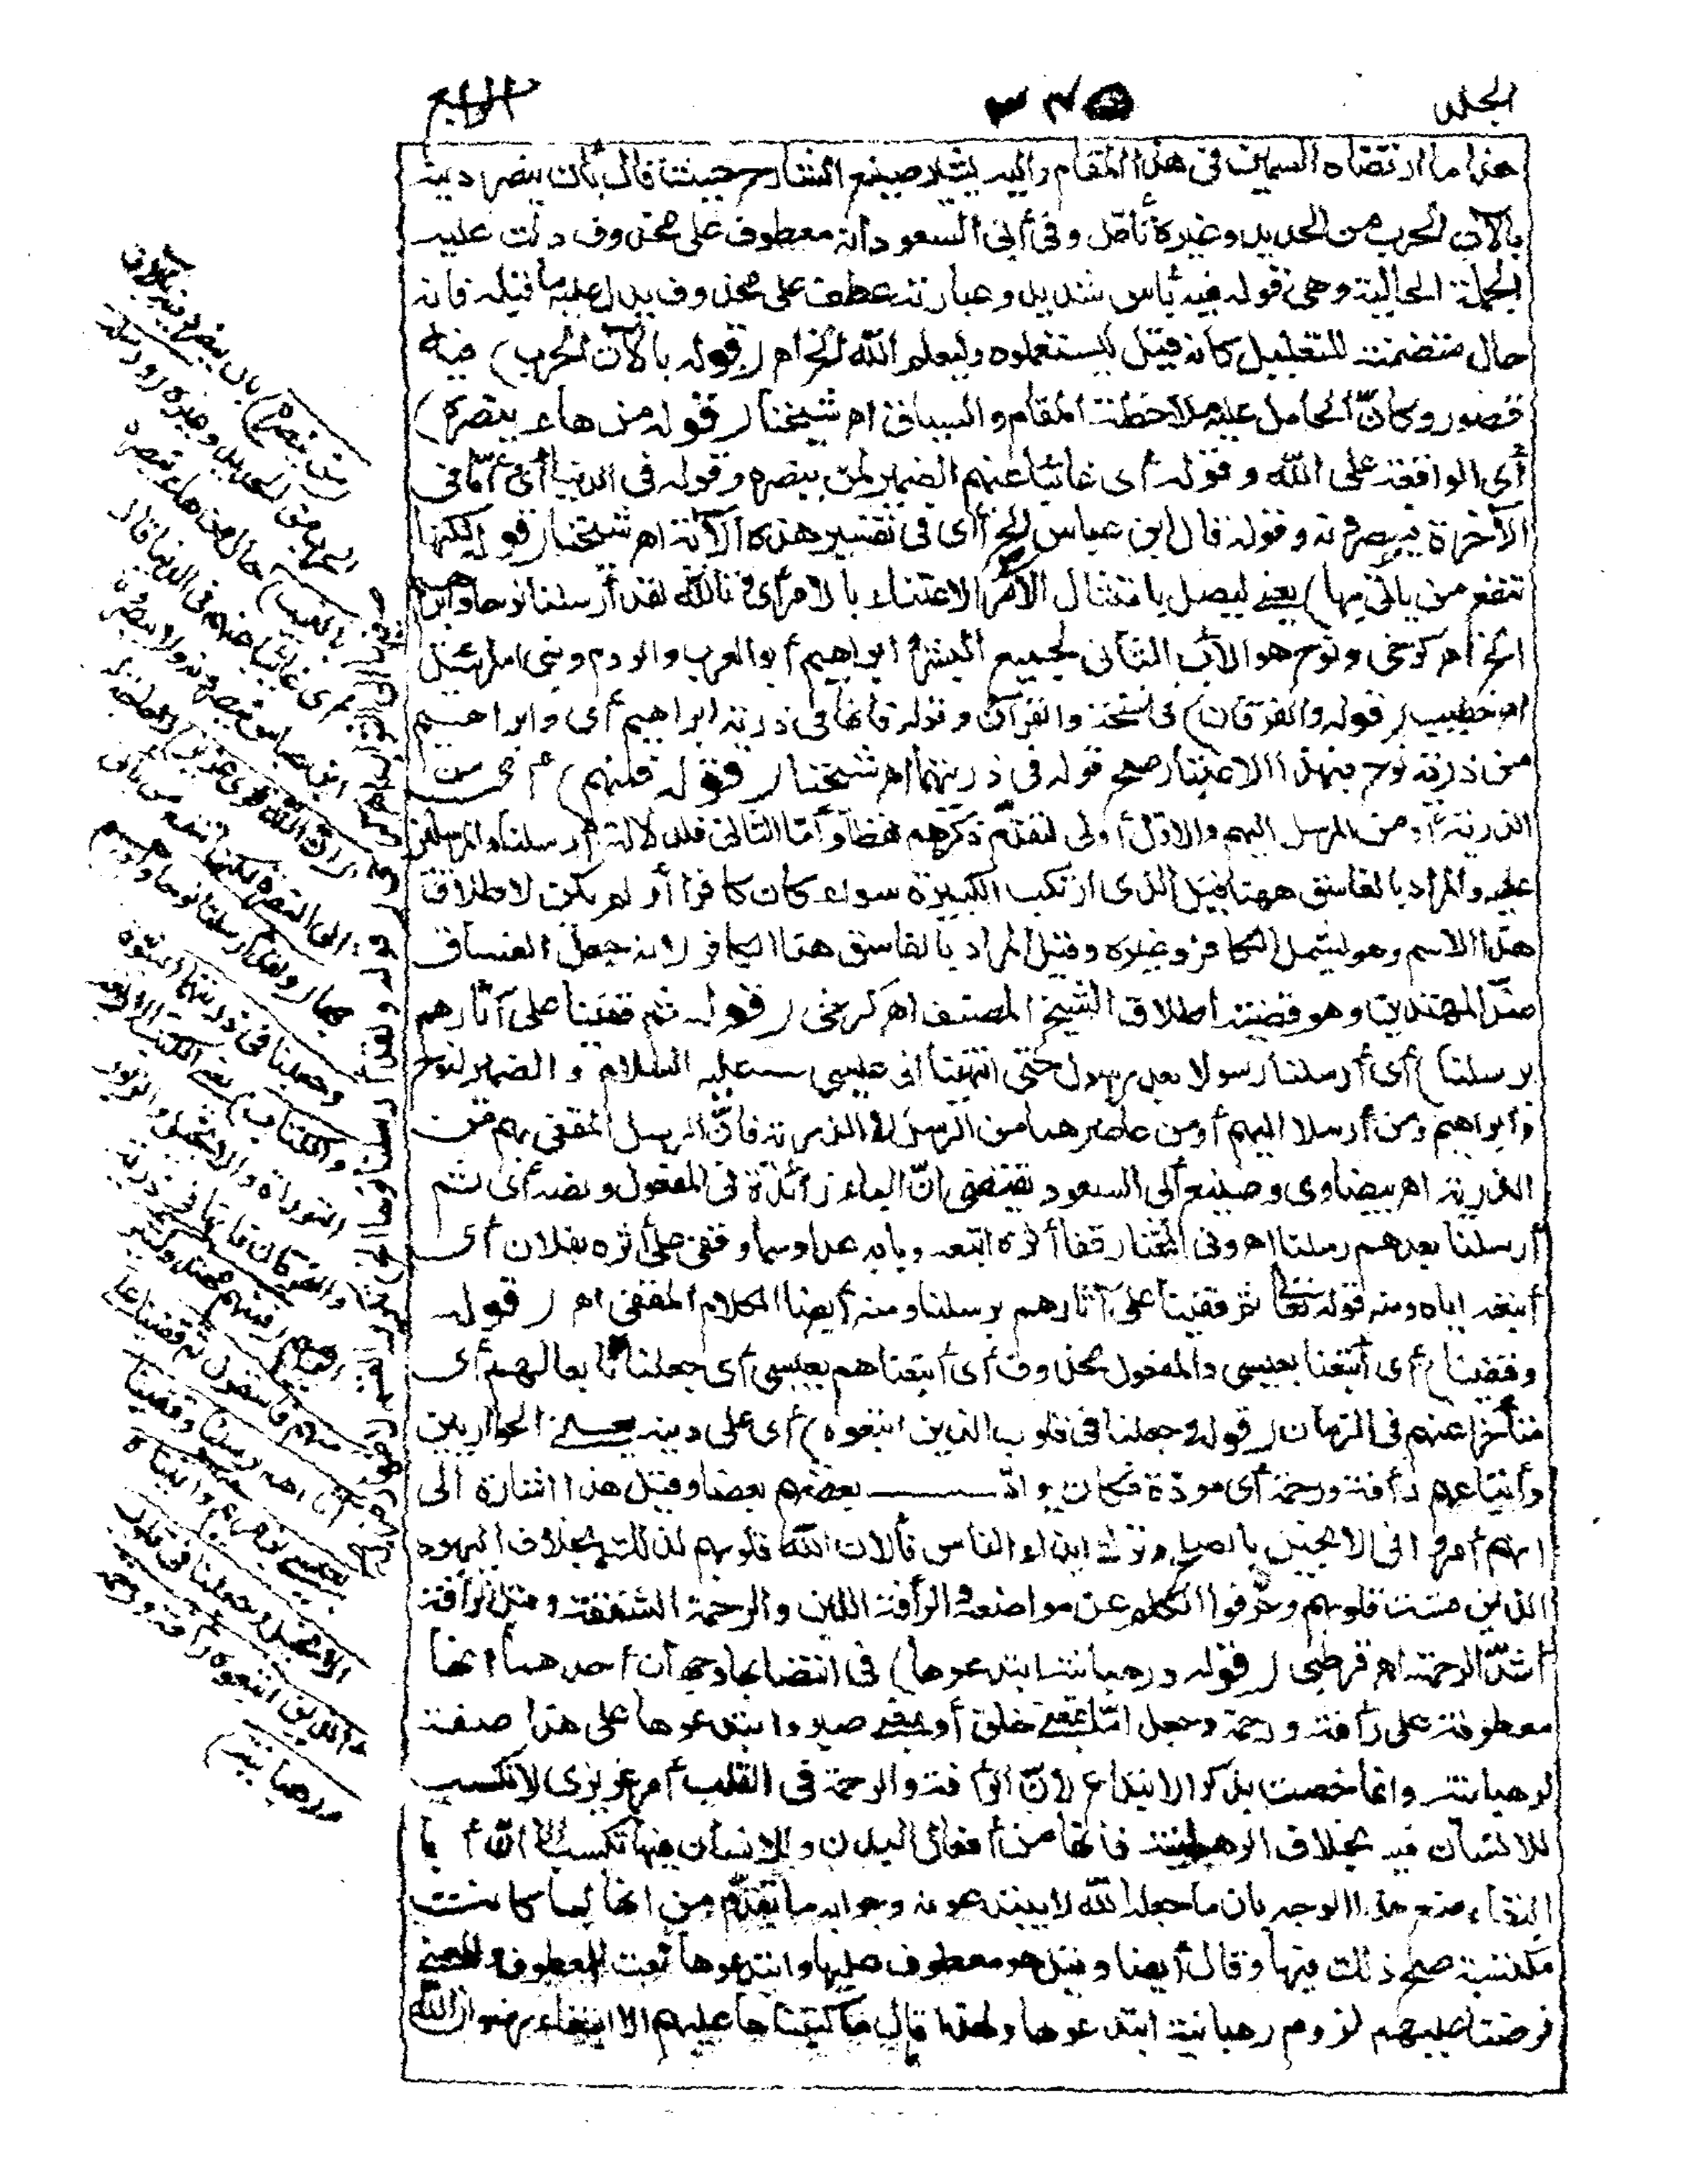 المجلد
الرابع
هذا ما ارتضاه السمين في هذا المقام واليه يشير صنيع الشارح حيث قال بأن ينصر دينه
بآلات الحرب من الحديد وغيره تأمل وفي أبي السعود أنه معطوف على محذوف دلت عليه
الجملة الحالية وهي قوله فيه بأس شديد وعبارته عطف على محذوف يدل عليه ما قبله فانه
حال متضمنة للتعليل كأنه قيل ليستعملوه وليعلم الله الخ اه (قوله بآلات الحرب) فيه
قصور وكأنّ الحامل عليه ملاحظة المقام والسياق اه شيخنا (قوله من هاء ينصره)
أي الواقعة على الله وقوله أي غائبا عنهم الضمير لمن ينصره وقوله في الدنيا أي وأمّا في
الآخرة فيبصرونه وقوله قال ابن عباس الخ أي في تفسير هذه الآية اه شيخنا (قوله لكنها
تنفع من يأتي بها) يعني ليصل بامتثال الأمر الاعتناء بالامر أي تالله لقد أرسلنا نوحا وابراهيم
الخ اه كرخي ونوح هو الأب الثاني لجميع البشر وابراهيم أبو العرب والروم وبني اسرائيل
اه خطيب (قوله والفرقان) في نسخة والقرآن وقوله فانها في ذرية ابراهيم أي وابراهيم
من ذرية نوح فبهذا الاعتبار صح قوله في ذريتهما اه شيخنا (قوله فمنهم) أي من
الذرية أو من المرسل اليهم والاول أولى لتقدّم ذكرهم لفظا وأمّا الثاني فلدلالة أرسلنا والمرسلين
عليه والمراد بالفاسق ههنا قيل الذي ارتكب الكبيرة سواء كان كافرا أو لم يكن لاطلاق
هذا الاسم وهو يشمل الكافر وغيره وقيل المراد بالفاسق هنا الكافر لانه جعل الفساق
ضدّ المهتدين وهو قضية اطلاق الشيخ المصنف اه كرخي (قوله ثم قفينا على آثارهم
برسلنا) أي أرسلنا رسولا بعد رسول حتى انتهينا الى عيسى عليه السلام والضمير لنوح
وابراهيم ومن أرسلا اليهم أو من عاصرهما من الرسل لا الذرية فانّ الرسل المقفى بهم من
الذرية اه بيضاوي وصنيع أبي السعود يقتضي انّ الباء زائدة في المفعول ونصه أي ثم
أرسلنا بعدهم رسلنا اه وفي المختار قفا أثره اتبعه وبابه عدا وسما وقفى على أثره بفلان أي
أتبعه اياه ومنه قوله تعالى ثم قفينا على آثارهم برسلنا ومنه أيضا الكلام المقفى اه (قوله
وقفينا) أي أتبعنا بعيسى والمفعول محذوف أي أتبعناهم بعيسى أي جعلناه تابعا لهم أي
متأخرا عنهم في الزمان (قوله وجعلنا في قلوب الذين اتبعوه) أي على دينه يعني الحواريين
وأتباعهم رأفة ورحمة أي مودّة فكان يوادّ بعضهم بعضا وقيل هذا اشارة الى
انهم أمروا في الانجيل بالصلح وترك ايذاء الناس فألان الله قلوبهم لذلك بخلاف اليهود
الذين قست قلوبهم وحرّفوا الكلم عن مواضعه والرأفة اللين والرحمة الشفقة وقيل الرأفة
أشدّ الرحمة اه قرطبي (قوله ورهبانية ابتدعوها) في انتصابها وجهان أحدهما انها
معطوفة على رأفة ورحمة وجعل امّا بمعنى خلق أو بمعنى صير وابتدعوها على هذا صفة
لرهبانية وانما خصت بذكر الابتداع لانّ الرأفة والرحمة في القلب أمر غريزي لا تكسب
للانسان فيه بخلاف الرهبانية فانها من أفعال البدن وللانسان فيها تكسب الا أنّ أبا
البقاء منع هذا الوجه بان ما جعله الله لا يبتدعونه وجوابه ما تقدّم من انها لما كانت
مكتسبة صح ذلك فيها وقال أيضا وقيل هو معطوف عليها وابتدعوها نعت للمعطوف والمعنى
فرضنا عليهم لزوم رهبانية ابتدعوها ولهذا قال ما كتبناها عليهم الا ابتغاء رضوان الله
(من ينصره) بان ينصر دينه بآلات
الحرب من الحديد وغيره (ورسله
بالغيب) حال من هاء ينصره
أي غائبا عنهم في الدنيا قال
ابن عباس ينصرونه ولا يبصرونه
(ان الله قوي عزيز) لا حاجة له
الى النصرة لكنها تنفع من يأتي
بها (ولقد أرسلنا نوحا وابراهيم
وجعلنا في ذريتهما النبوّة
والكتاب) يعني الكتب الاربعة
التوراة والانجيل والزبور
والفرقان فانها في ذرية
ابراهيم (فمنهم مهتد وكثير
منهم فاسقون ثم قفينا على
آثارهم برسلنا وقفينا
بعيسى ابن مريم وآتيناه
الانجيل وجعلنا في قلوب
الذين اتبعوه رأفة ورحمة
ورهبانية)